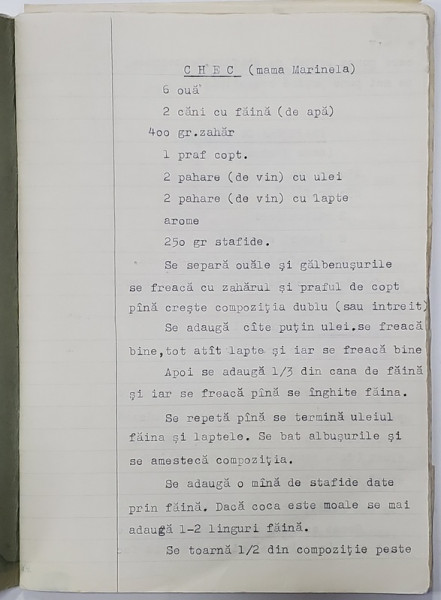 CHEC (mama Marinela)
6 ouă
2 căni cu făină (de apă)
400 gr.zahăr
1 praf copt.
2 pahare (de vin) cu ulei
2 pahare (de vin) cu lapte
arome
250 gr stafide.
Se separă ouăle şi gălbenuşurile
se freacă cu zahărul şi praful de copt
pînă creşte compoziţia dublu (sau intreit)
Se adaugă cîte puţin ulei.se freacă
bine,tot atît lapte şi iar se freacă bine
Apoi se adaugă 1/3 din cana de făină
şi iar se freacă pînă se înghite făina.
Se repetă pînă se termină uleiul
făina şi laptele. Se bat albuşurile şi
se amestecă compoziţia.
Se adaugă o mînă de stafide date
prin făină. Dacă coca este moale se mai
adaugă 1-2 linguri făină.
Se toarnă 1/2 din compoziţie peste